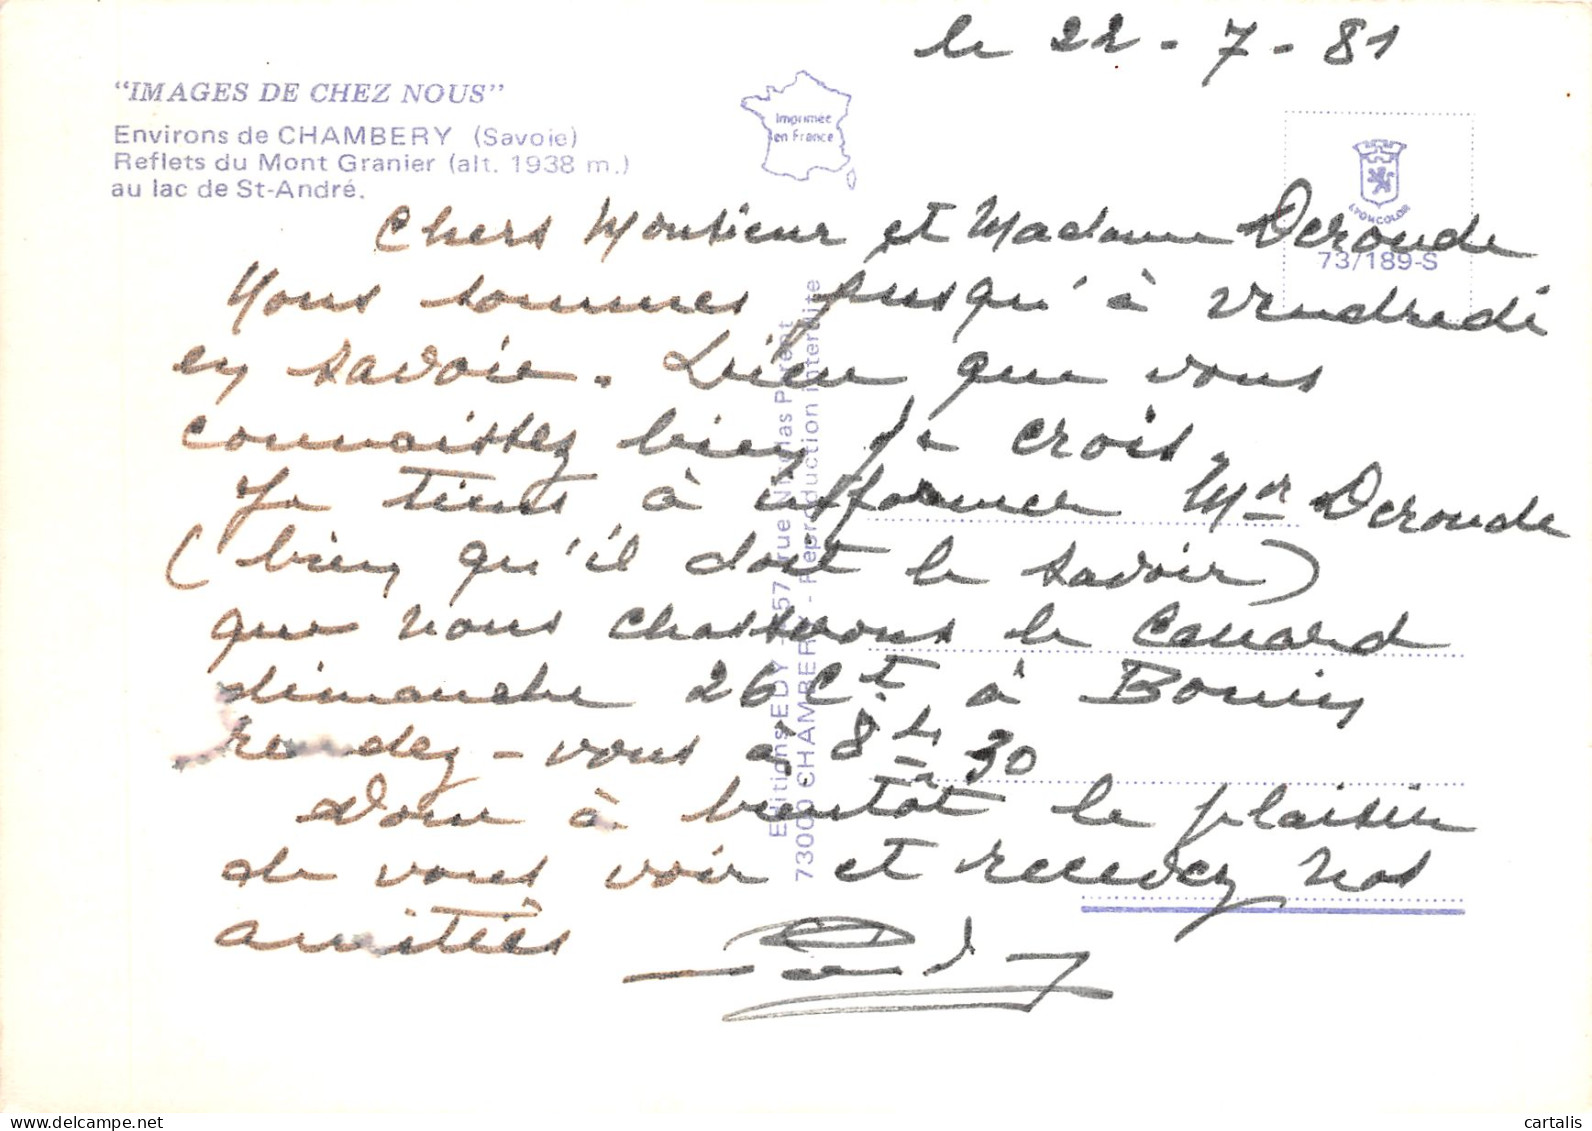 le 22 - 7 - 81
"IMAGES DE CHEZ NOUS"
Environs de CHAMBERY (Savoie)
Reflets du Mont Granier (alt. 1938 m.)
au lac de St-André.
Imprimée
en France
LYONCOLOR
73/189-S
Chers Monsieur et Madame Deroude
Nous sommes jusqu'à vendredi
en Savoie. Lieu que vous
connaissez bien je crois.
Je tiens à informer Mr Deroude
(bien qu'il doit le savoir)
que nous chasserons le Canard
dimanche 26 Ct à Bouin
rendez-vous à 8 h 30
Donc à bientôt le plaisir
de vous voir et recevez nos
amitiés
Editions EDY - 157, rue Nicolas Parent
73000 CHAMBERY - Reproduction interdite
cartalis